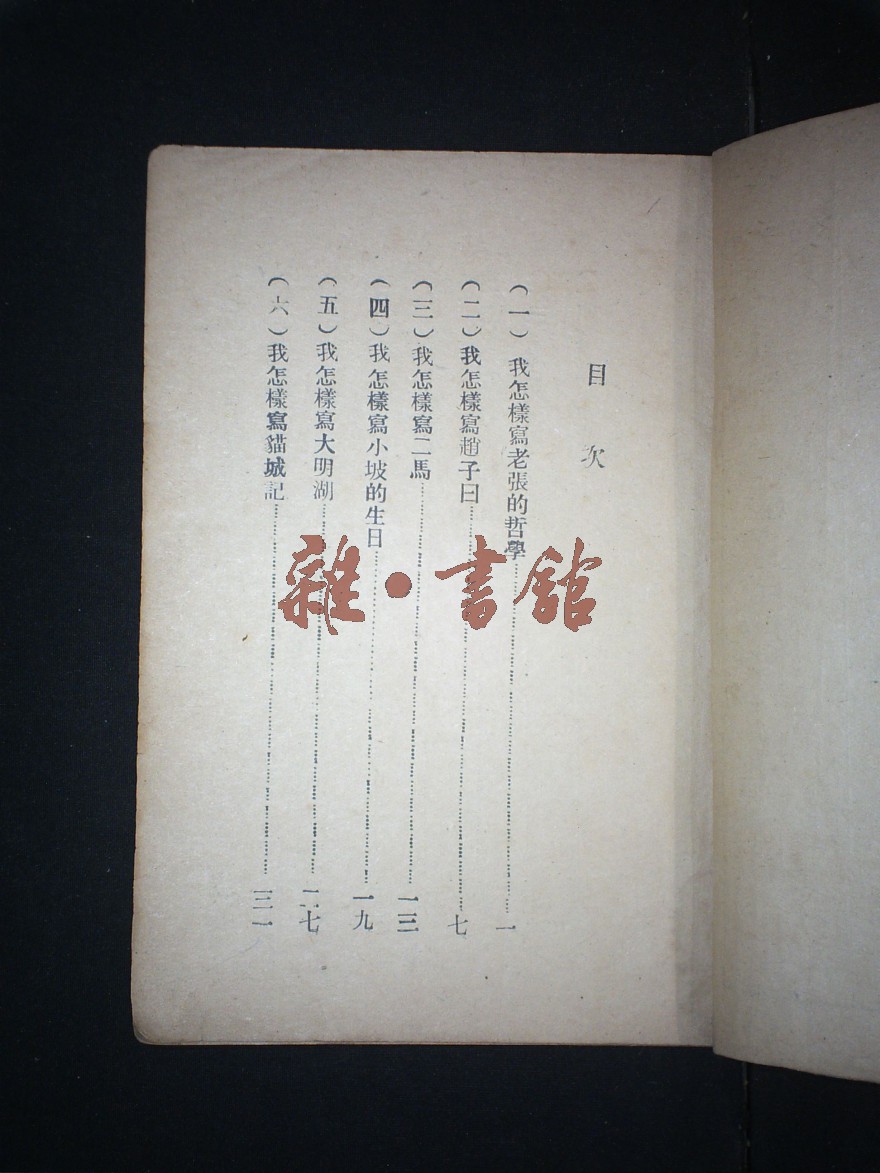 目次
(一)我怎樣寫老張的哲學……一
(二)我怎樣寫趙子曰……七
(三)我怎樣寫二馬……一三
(四)我怎樣寫小坡的生日……一九
(五)我怎樣寫大明湖……二七
(六)我怎樣寫貓城記……三一
雜·書舘